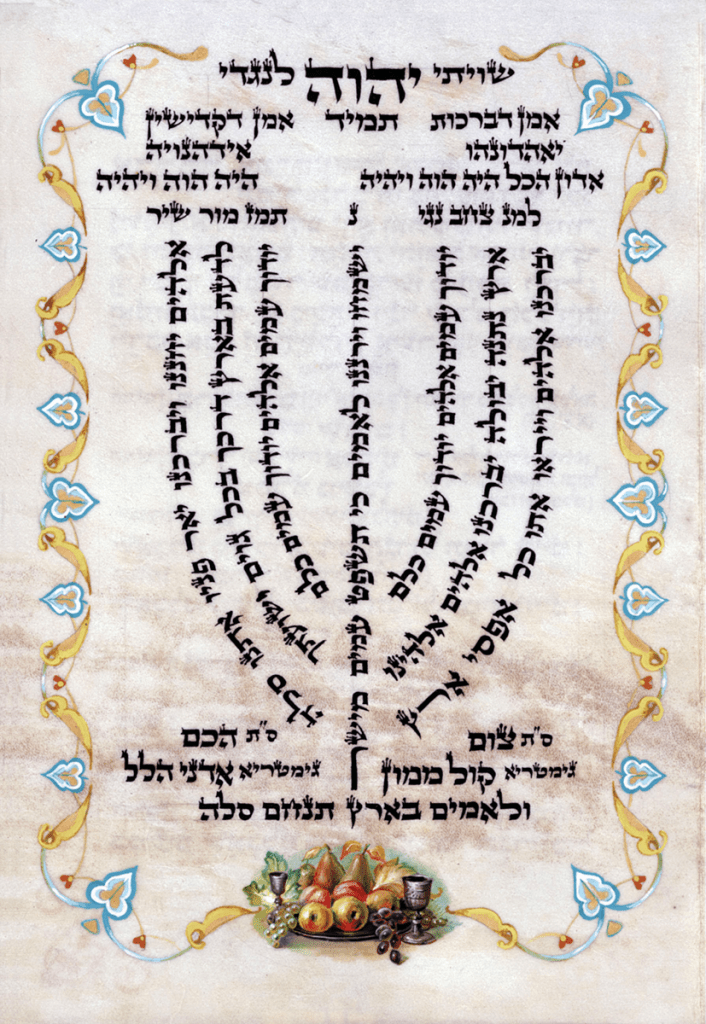 שויתי יהוה לנגדי
אמן דברכות תמיד אמן דקדישין
יאהדונהו אידהנויה
אדון הכל היה הוה ויהיה היה הוה ויהיה
למנ צחב נגי נ תמז מור שיר
יברכנו אלהים וייראו אתו כל אפסי ארץ
ארץ נתנה יבולה יברכנו אלהים אלהינו
יודוך עמים אלהים יודוך עמים כלם
ישמחו וירננו לאמים כי תשפט עמים מישר
יודוך עמים אלהים יודוך עמים כלם
לדעת בארץ דרכך בכל גוים ישועתך
אלהים יחננו ויברכנו יאר פניו אתנו סלה
ס"ת צום ס"ת הכם
גימטריא קול ממון גימטריא אדני הלל
ולאמים בארץ תנחם סלה